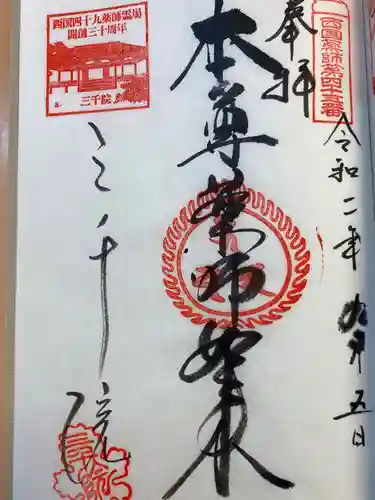 奉拝
西国薬師第四十五番
令和二年九月五日
本尊薬師如来
西国四十九薬師霊場
開創三十周年
三千院
三千院